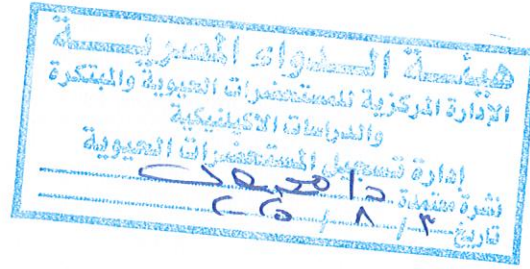 هيئة الدواء المصرية
الإدارة المركزية للمستحضرات الحيوية والمبتكرة
والدراسات الاكلينيكية
إدارة تسجيل المستحضرات الحيوية
نشرة معتمدة
تاريخ ٣ / ٨ / ٢٠٢٥